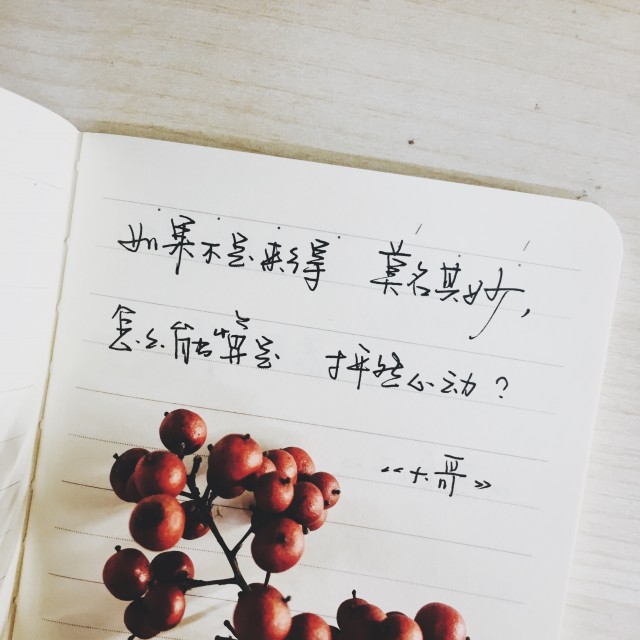 如果不是来得 莫名其妙,
怎么能算是 怦然心动?
《大哥》